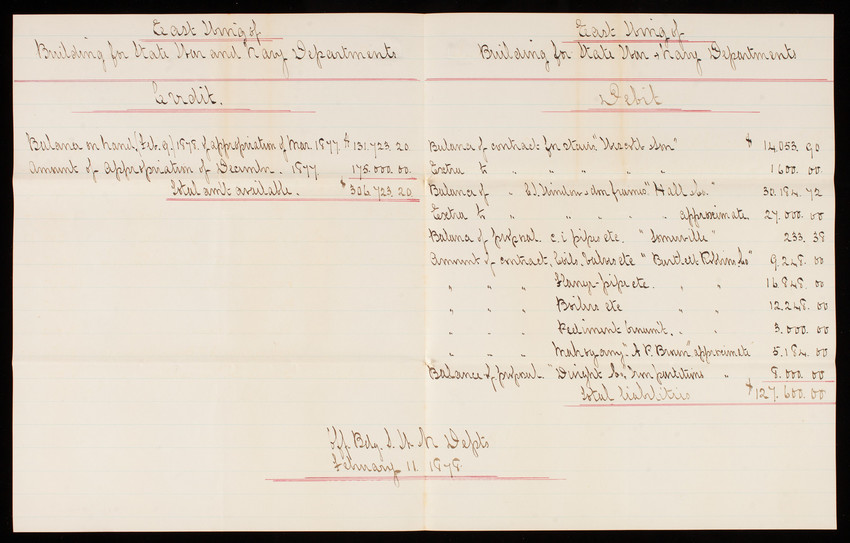 East Wing of
Building for State War and Navy Departments
Credit.
Balance on hand, (Feb. 9.) 1878. of appropriation of Mar 1877. $ 131.723.20
Amount of appropriation of December. 1877. 175.000.00
Total amt available. $ 306.723.20
East Wing of
Building for State War & Navy Departments
Debit
Balance of contract for stairs "& Son" $ 14,053.90
Extra to " " " " " 1600.00
Balance of " Window and frames "Hall & Co." 30.184.72
Extra to " " " " " approximate. 27.000.00
Balance of proposal. c.i pipes etc. "Somerville" 233.38
Amount of contract, Coils, Valves etc "Bartlett Robbins & Co" 9.248.00
" " " Flange-pipe etc. " " 16.848.00
" " " Boilers etc " " 12.248.00
" " " Pediment " " 3.000.00
" " " Mahogany "A. F. Brown" approximate 5.184.00
Balance of proposal. "Dwight & Co." Iron partitions " 8.000.00
Total liabilities $ 127.600.00
Off. Bdg. S. W. N. Depts
February 11. 1878.